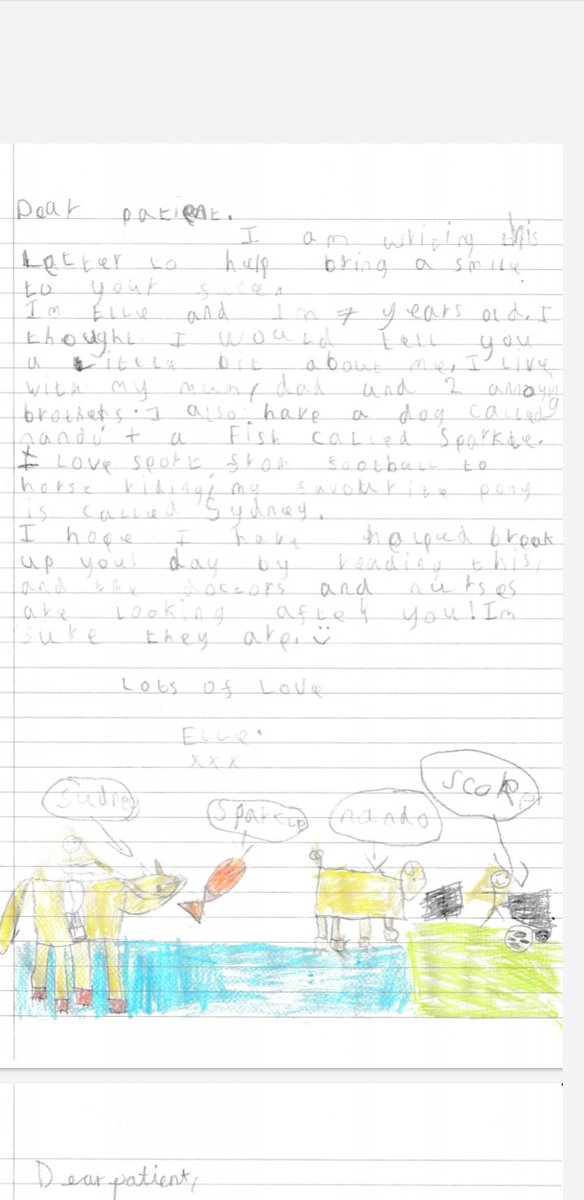 Dear patient.
I am writing this
Letter to help bring a smile
to your face.
Im Elle and Im 7 years old. I
thought I would tell you
a Little bit about me, I Live
with my mum, dad and 2 annoying
brothers. I also have a dog called
nando + a Fish called Sparkle.
I Love sport, from football to
horse riding, my favourite pony
is called Sydney.
I hope I have helped break
up your day by reading this,
and the doctors and nurses
are Looking after you! Im
sure they are.
Lots of Love
Elle.
xxx
Sadney
Sparkle
nando
Dear patient,